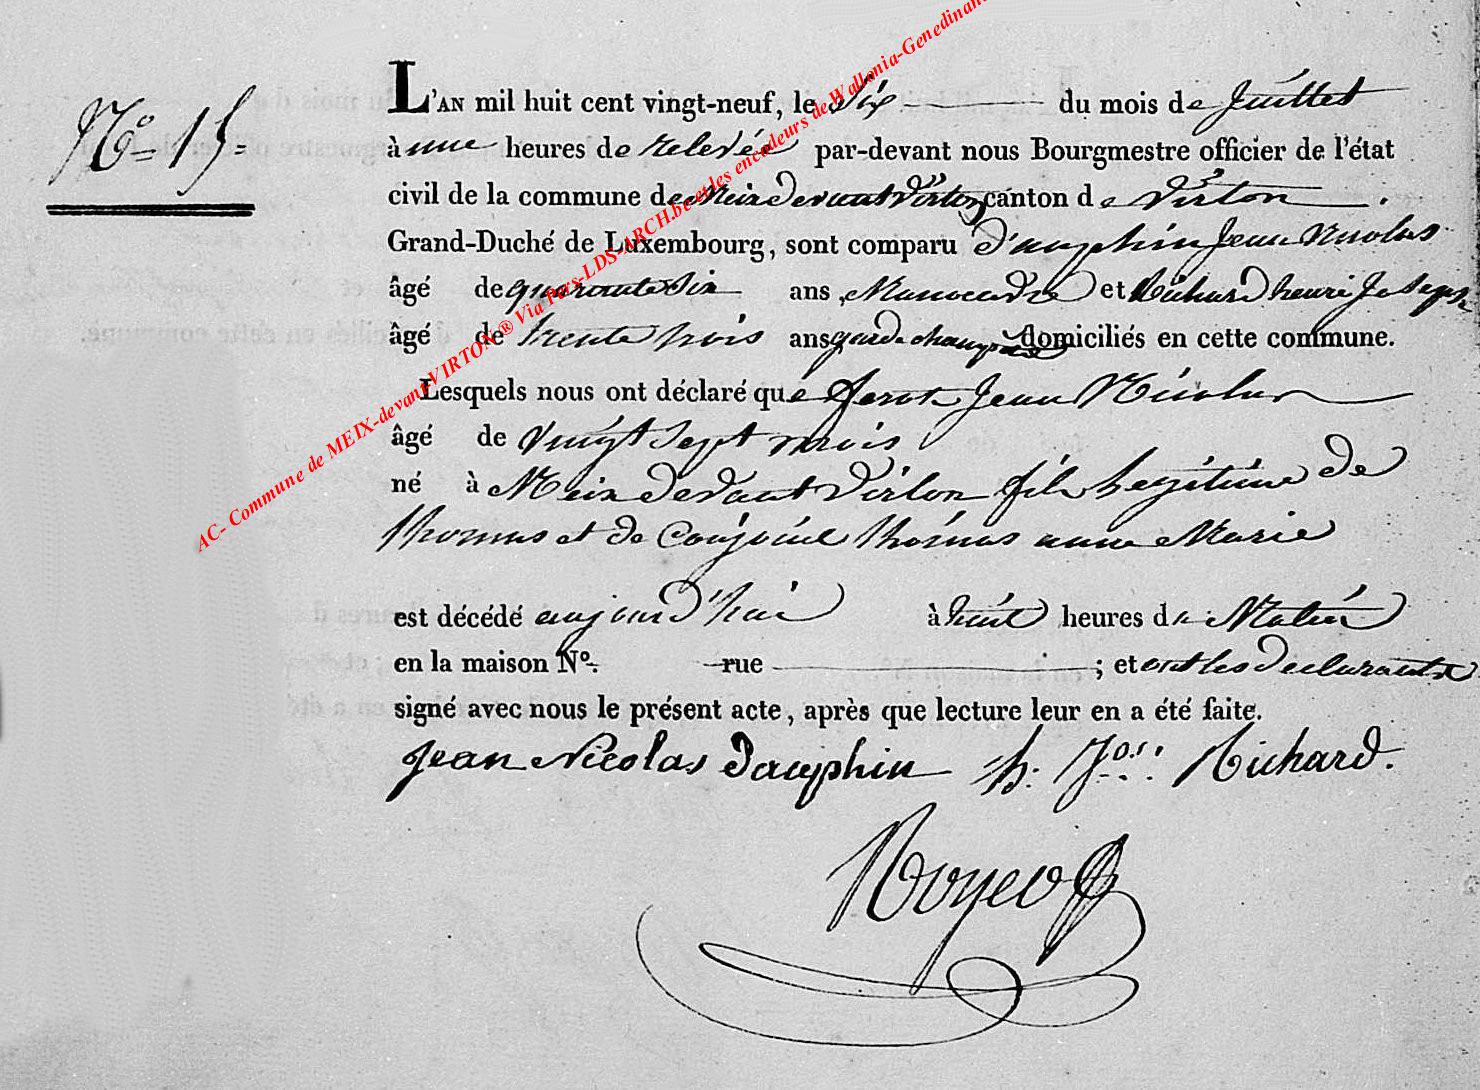 N.º 15.
L'AN mil huit cent vingt-neuf, le Six du mois de Juillet
à une heures de relevée par-devant nous Bourgmestre officier de l'état
civil de la commune de Meix devant Virton canton de Virton.
Grand-Duché de Luxembourg, sont comparu Dauphin Jean Nicolas
âgé de quarante six ans, Manoeuvre et Richard henri Joseph
âgé de trente trois ans garde champetre domiciliés en cette commune.
Lesquels nous ont déclaré que Jean Nicolas
âgé de vingt sept mois
né à Meix devant Virton fils legitime de
thomas et de thomas anne Marie
est décédé aujourd'hui à huit heures du Matin
en la maison N.º rue ; et ont les declarants
signé avec nous le présent acte, après que lecture leur en a été faite.
Jean Nicolas Dauphin h. Jos. Richard.
AC- Commune de MEIX-devant-VIRTON ® Via Pers-LDS-ARCH.be et les encodeurs de Wallonia-Genedinant